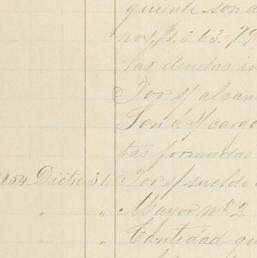 quiente son d
nos, $1.363.72
las deudas in
Por s/ alcan
Son á s/ cargo
tas formadas
1854 Dicbre 31. Por s/ sueldo
" " Mayor nº 2
" " Cantidad qu